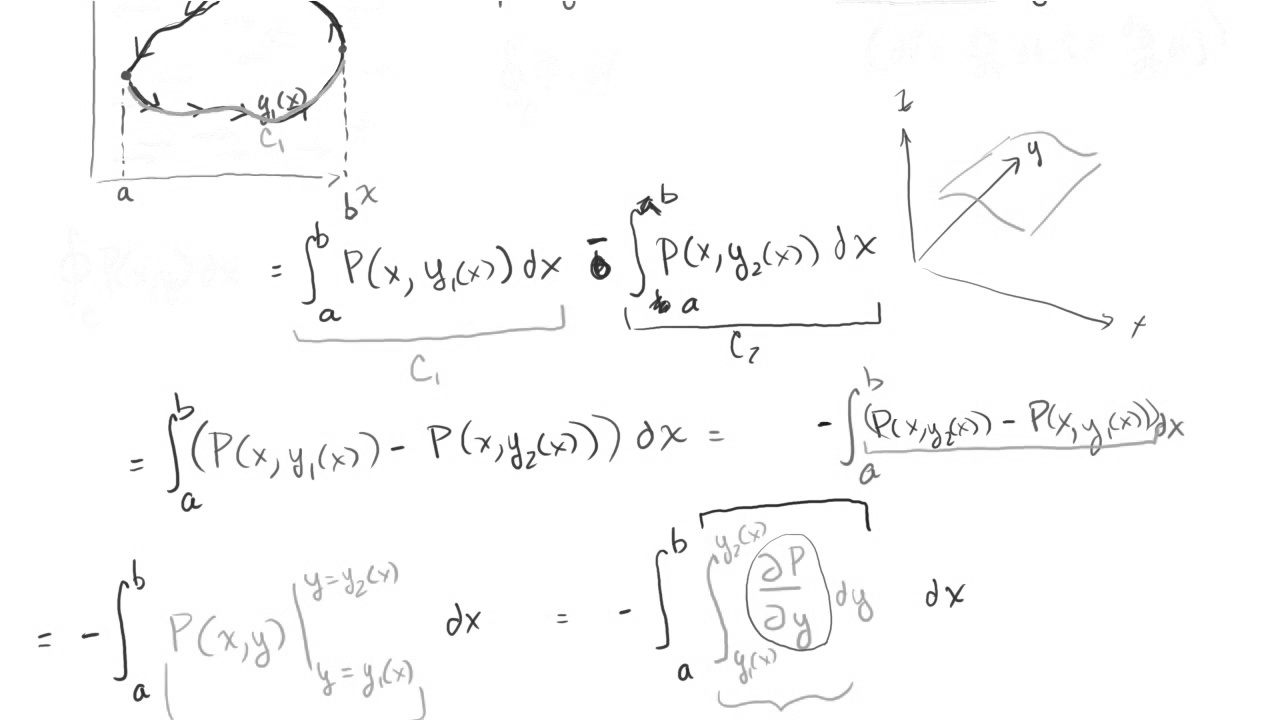 y₁(x)
C₁
a
b
x
z
y
x
= ∫_a^b P(x, y₁(x)) dx - ∫_a^b P(x, y₂(x)) dx
C₁
C₂
= ∫_a^b (P(x, y₁(x)) - P(x, y₂(x))) dx = - ∫_a^b (P(x, y₂(x)) - P(x, y₁(x))) dx
= - ∫_a^b P(x,y) |_{y = y₁(x)}^{y = y₂(x)} dx = - ∫_a^b ∫_{y₁(x)}^{y₂(x)} ∂P/∂y dy dx